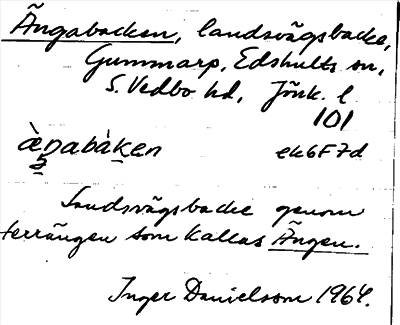 Ängabacken, landsvägsbacke,
Gummarp, Edshults sn,
S. Vedbo hd, Jönk. l
101
ek6F7d
Landsvägsbacke genom
terrängen som kallas Ängen.
Inger Danielsson 1964.